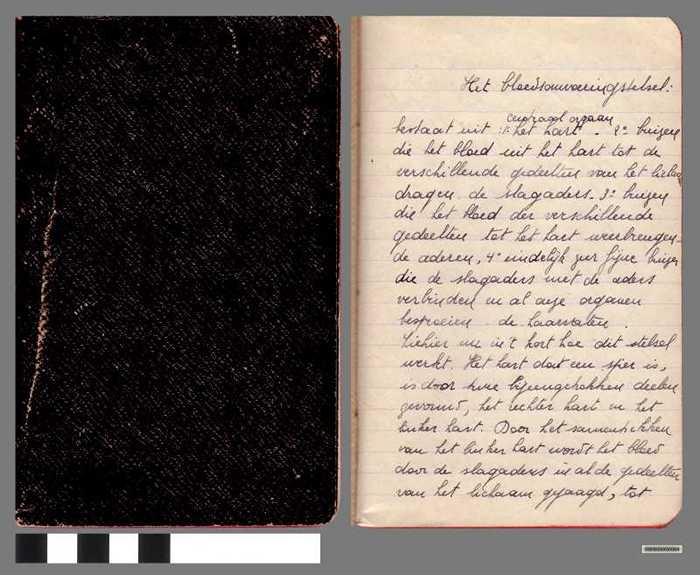 Het bloedsomvoeringstelsel:
centraal orgaan
bestaat uit : 1º het hart - 2º buizen
die het bloed uit het hart tot de
verschillende gedeelten van het lichaam
dragen de slagaders - 3º buizen
die het bloed der verschillende
gedeelten tot het hart weerbrengen
de aderen, 4º eindelijk zeer fijne buizen
die de slagaders met de aders
verbinden en al onze organen
besproeien de haarvaten.
Ziehier nu in 't kort hoe dit stelsel
werkt. Het hart dat een spier is,
is door twee bijeengetrokken deelen
gevormd, het rechter hart en het
linker hart. Door het samentrekken
van het linker hart wordt het bloed
door de slagaders in al de gedeelten
van het lichaam gejaagd, tot